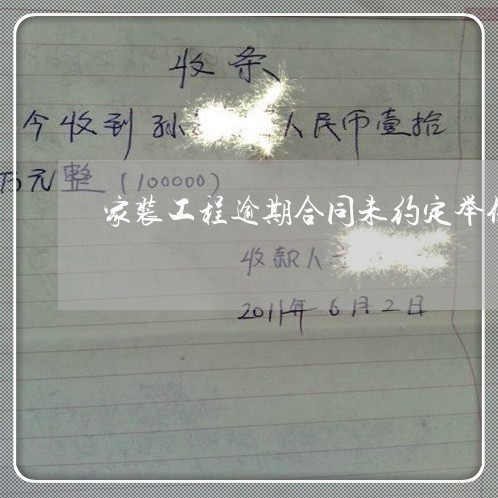 收条
今收到孙 人民币壹拾
万元整(100000)
家装工程逾期合同未约定举
收款人
2011年6月2日